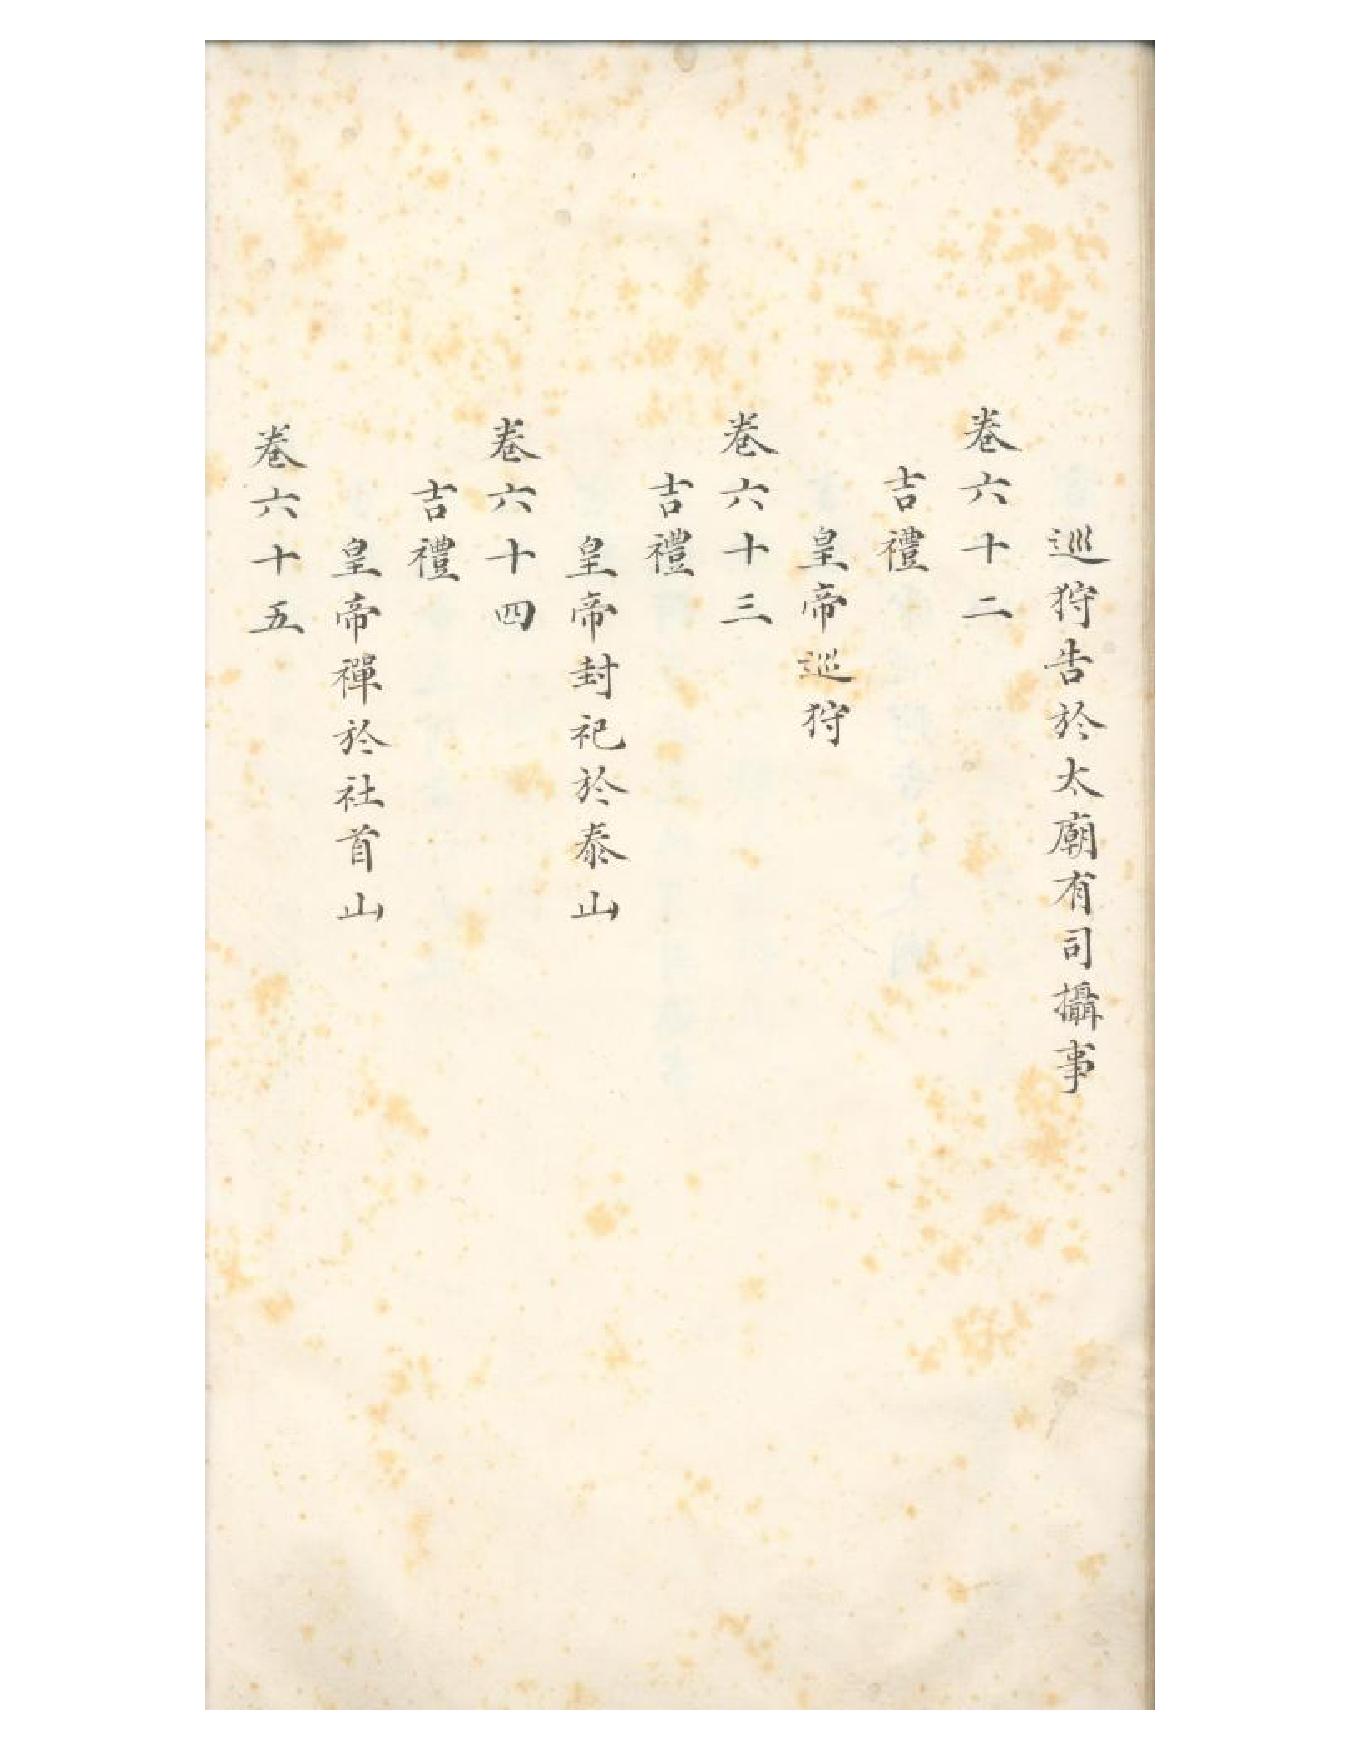 巡狩告於太廟有司攝事
卷六十二
吉禮
皇帝巡狩
卷六十三
吉禮
皇帝封祀於泰山
卷六十四
吉禮
皇帝禪於社首山
卷六十五